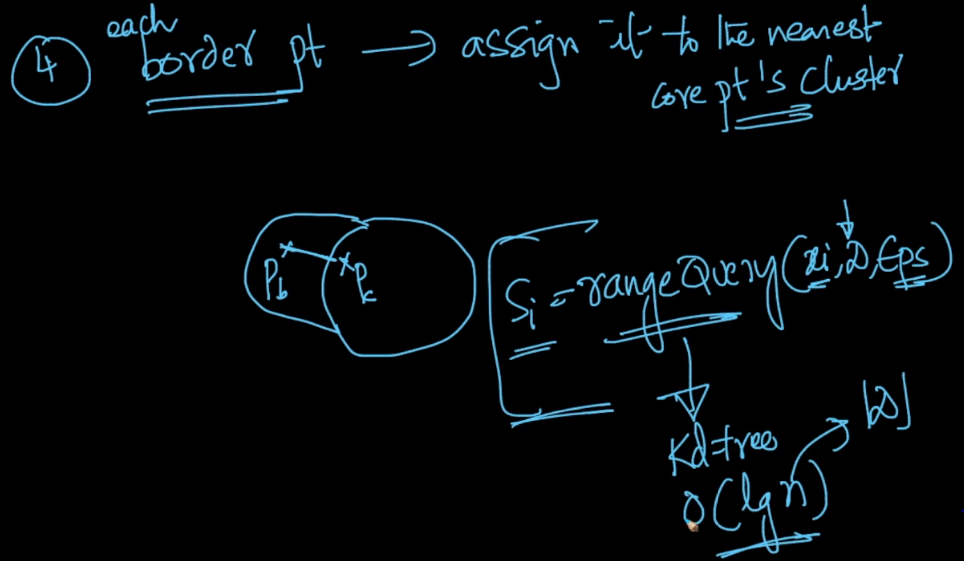 ④ each
border pt → assign it to the nearest
core pt's cluster
Pb Pc
Si = rangeQuery(xi, D, Eps)
Kd-tree
O(lg n) → |D|